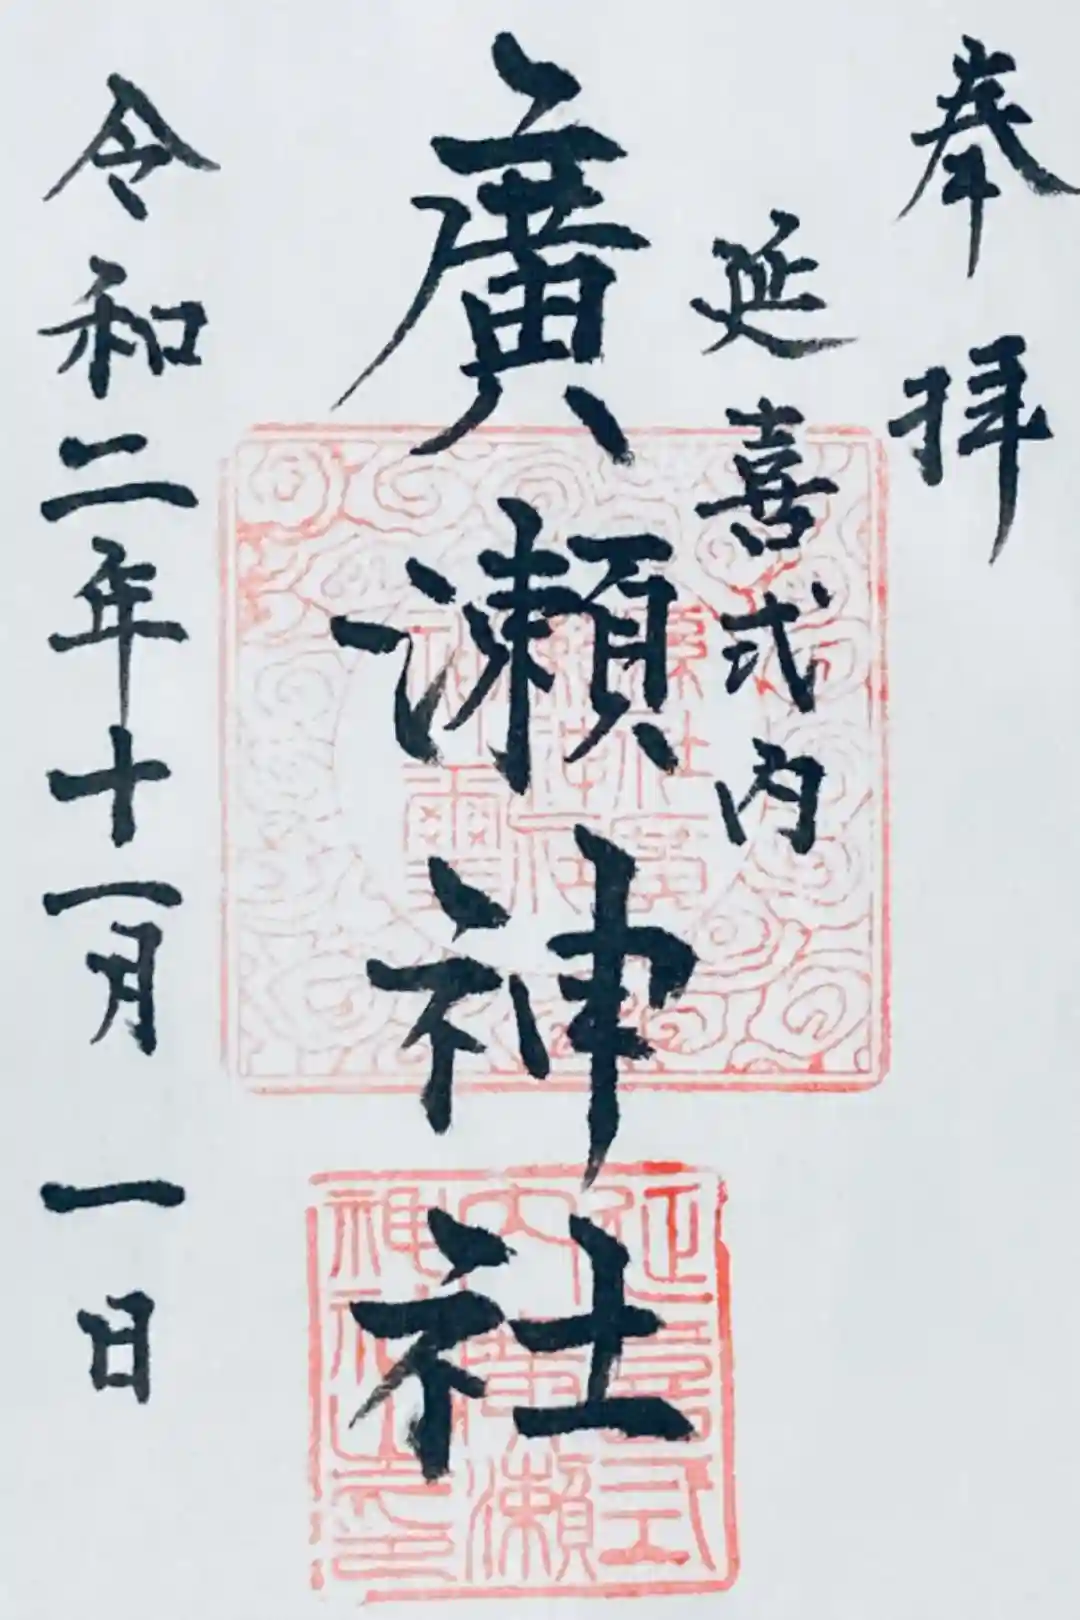 奉拝
延喜式内
廣瀬神社
令和二年十一月一日
延喜式
内廣瀬
神社之印